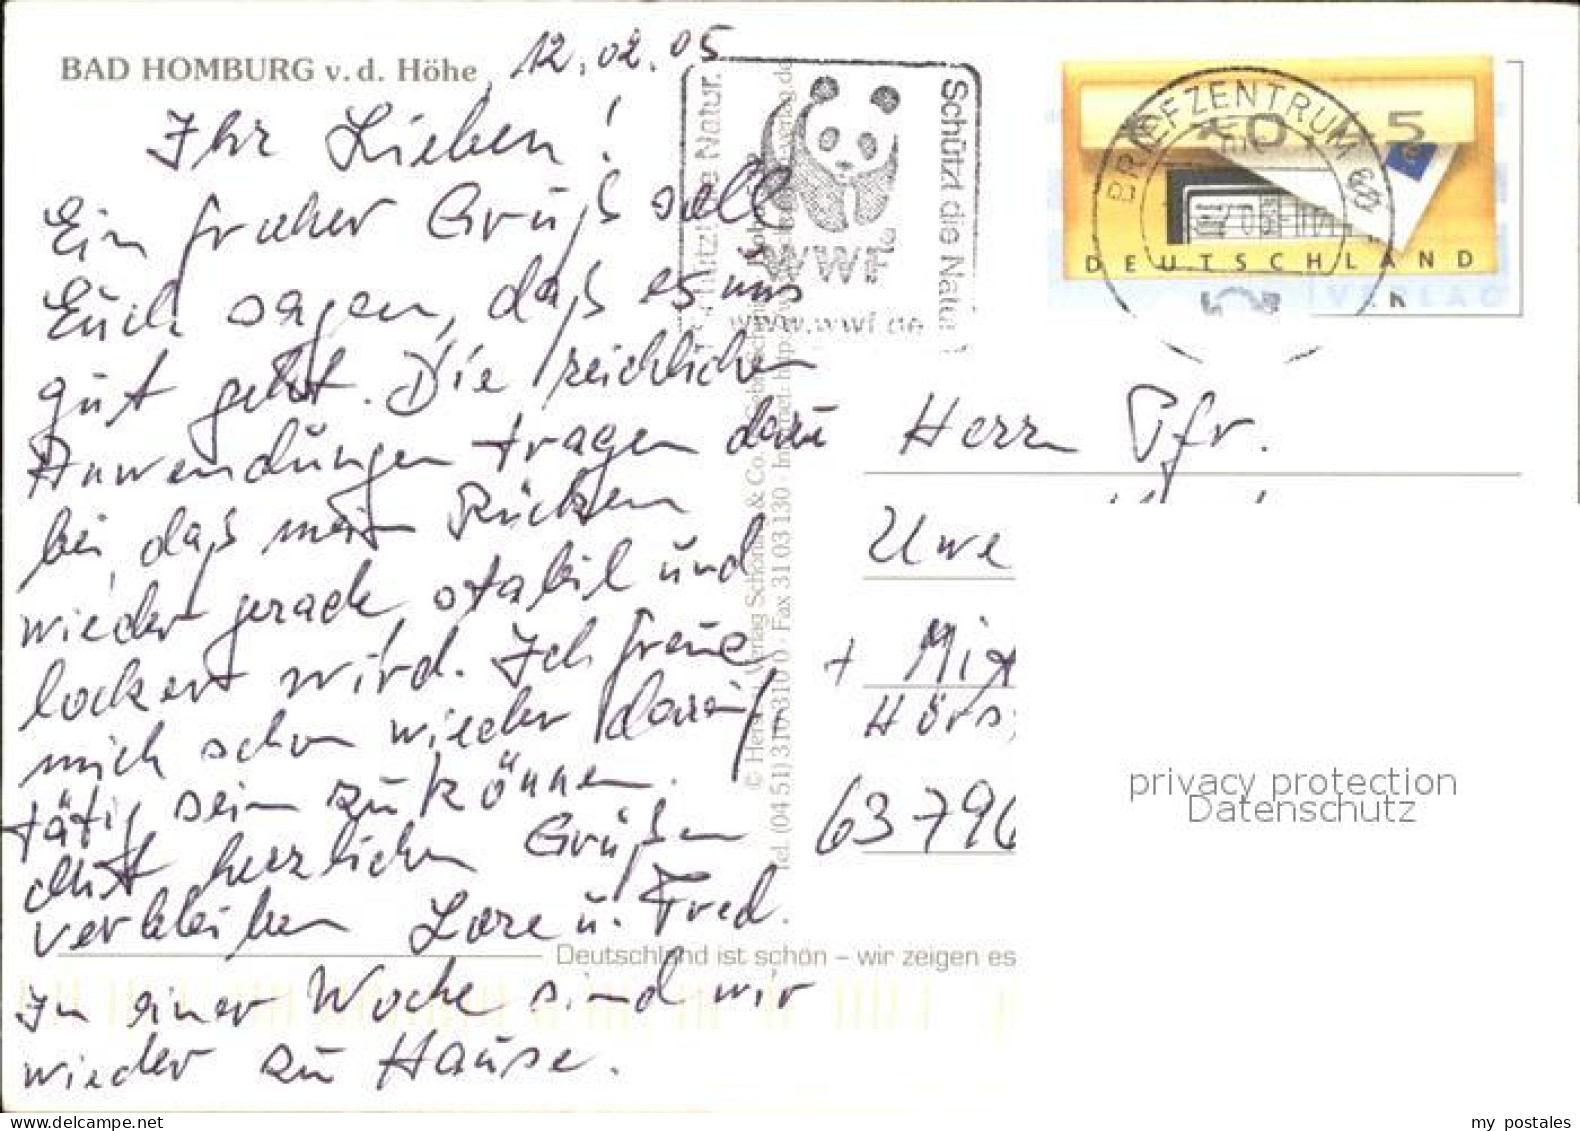 BAD HOMBURG v. d. Höhe
12.02.05
Ihr Lieben!
Ein froher Gruß soll
Euch sagen, daß es uns
gut geht. Die reichlichen
Anwendungen tragen dazu
bei, daß mein Rücken
wieder gerade, stabil und
lockert wird. Ich freue
mich schon wieder darauf
tätig sein zu können.
Mit herzlichen Grüßen
verbleiben Lore u. Fred.
In einer Woche sind wir
wieder zu Hause.
Deutschland ist schön – wir zeigen es
Tel. (04 51) 3 10 310 0 · Fax 31 03 130
Schützt die Natur.
Schützt die Natur
WWF
www.wwf.de
BRIEFZENTRUM
DEUTSCHLAND
VERLAG
Herrn Pfr.
Uwe
+
Hörs
63796
privacy protection
Datenschutz
my postales